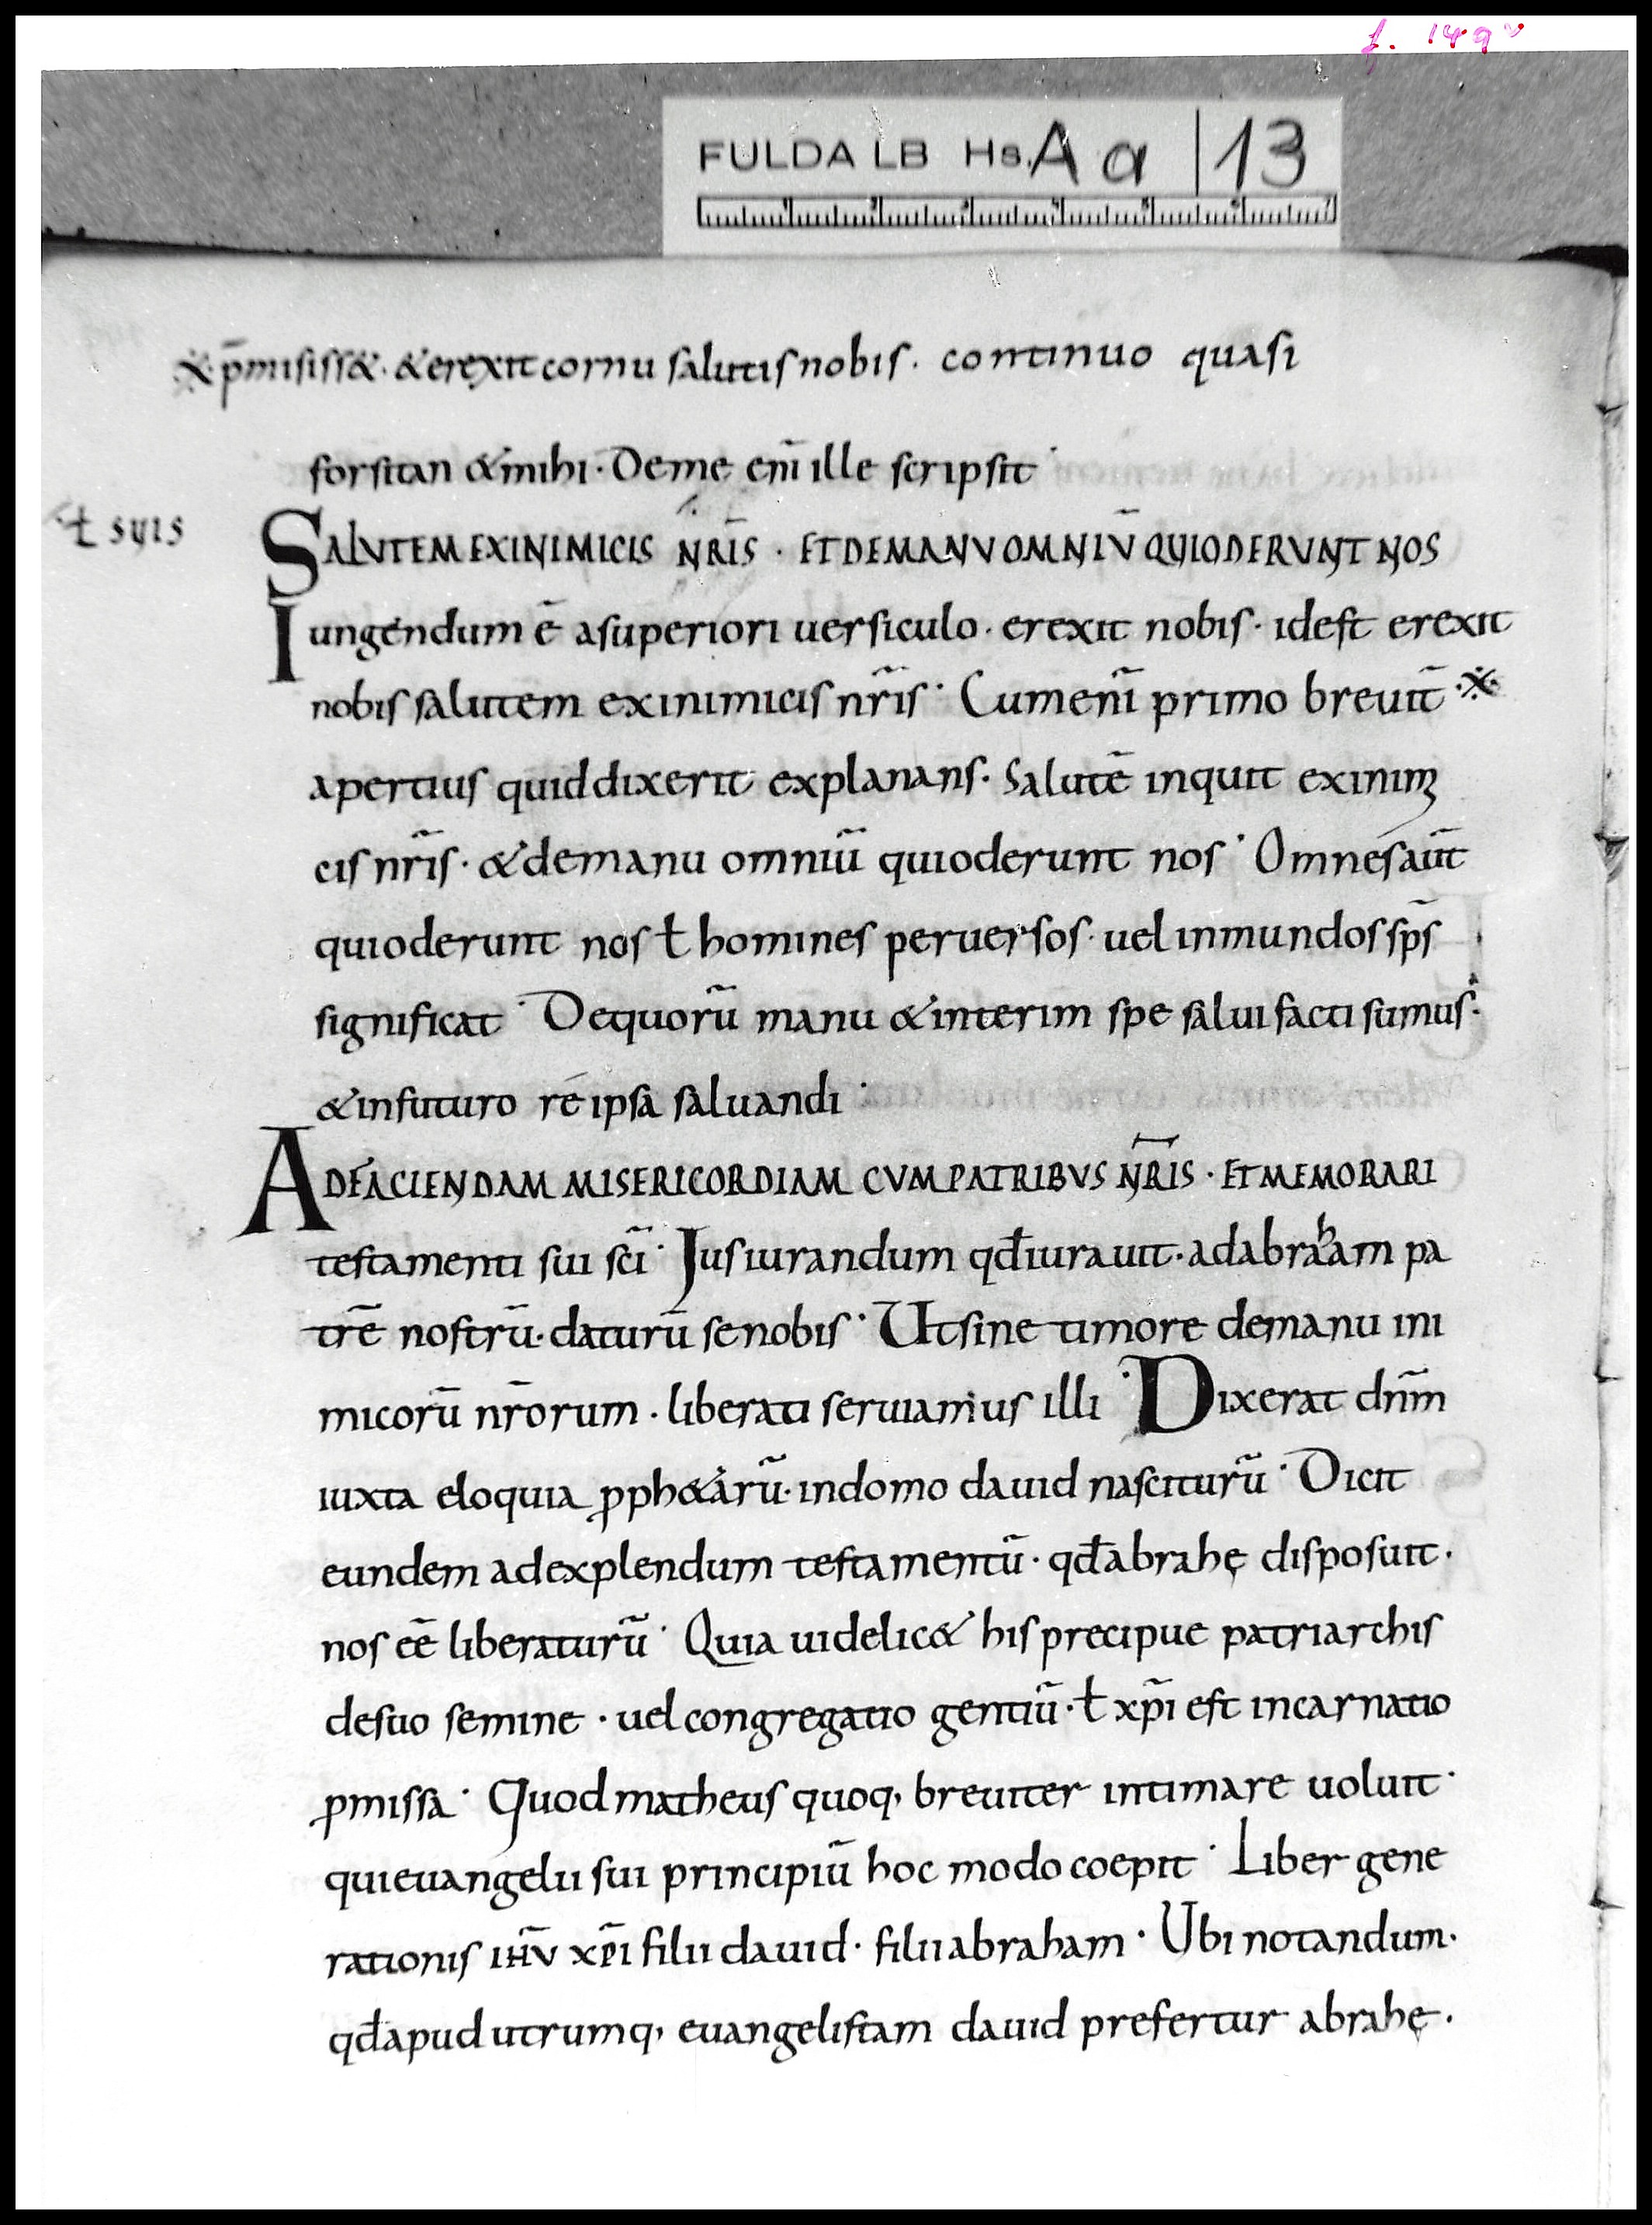 f. 149v
FULDA LB Hs. Aa 13
※ p̄misiss&. & erexit cornu salutis nobis. continuo quasi
forsitan & mihi. De me enī ille scripsit.
ł suis
SALVTEM EX INIMICIS NR̄IS. ET DE MANV OMNIV̄ QVI ODERVNT NOS
Iungendum ē a superiori uersiculo. erexit nobis. id est erexit
nobis salutem ex inimicis nr̄is. Cum enī primo breuit̄ ※
apertius quid dixerit explanans. Salutē inquit ex inimi
cis nr̄is. & de manu omniū qui oderunt nos. Omnes aūt
qui oderunt nos ł homines peruersos. uel inmundos sp̄s
significat. De quorū manu & interim spe salui facti sumus.
& in futuro re ipsa saluandi.
AD FACIENDAM MISERICORDIAM CVM PATRIBVS NR̄IS. ET MEMORARI
testamenti sui sc̄i. Iusiurandum qđ iurauit. ad abraham pa
trē nostrū. daturū se nobis. Ut sine timore de manu ini
micorū nr̄orum. liberati seruiamus illi. Dixerat dn̄m
iuxta eloquia ꝓph&arū. in domo dauid nasciturū. Dicit
eundem ad explendum testamentū. qđ abrahę disposuit.
nos eē liberaturū. Quia uidelic& his precipue patriarchis
de suo semine. uel congregatio gentiū. ł xp̄i est incarnatio
ꝓmissa. Quod matheus quoq, breuiter intimare uoluit.
qui euangelii sui principiū hoc modo coepit. Liber gene
rationis ih̄v xp̄i filii dauid. filii abraham. Ubi notandum.
qđ apud utrumq, euangelistam dauid prefertur abrahę.